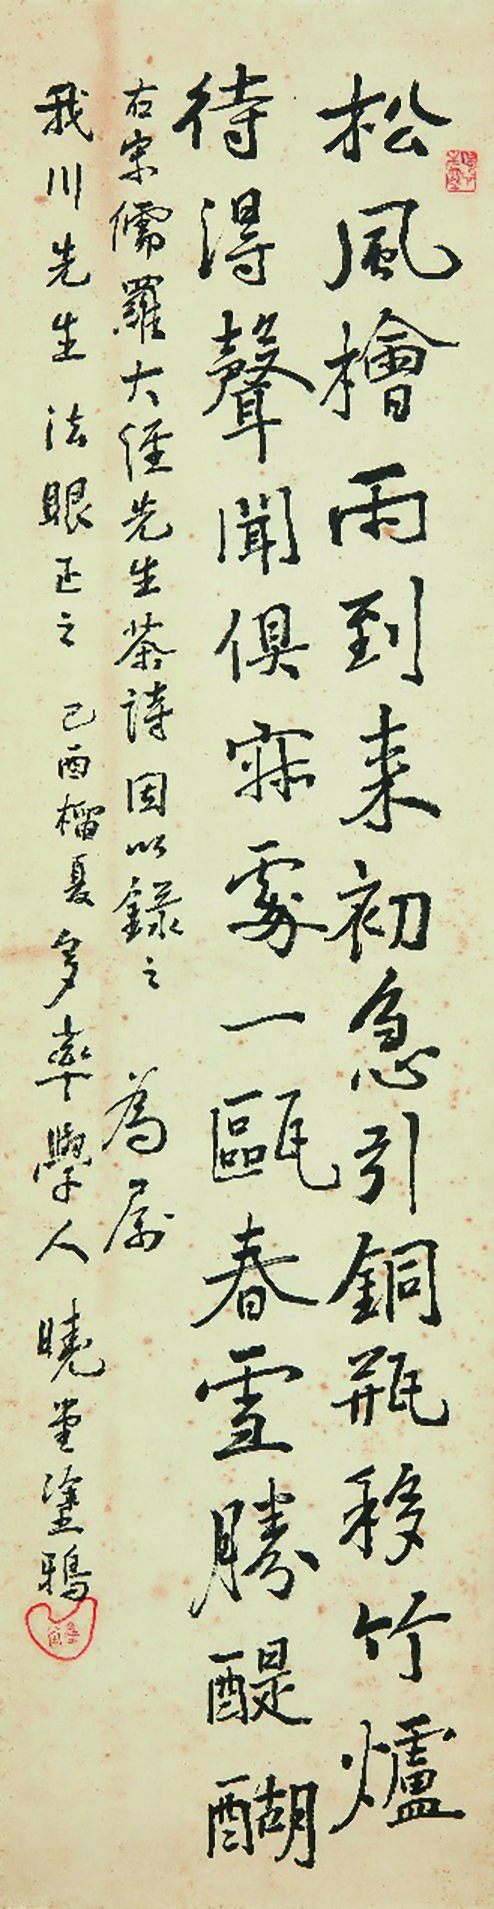 松風檜雨到來初急引銅瓶移竹爐
待得聲聞俱寂處一甌春雪勝醍醐
右宋儒羅大經先生茶詩因以錄之 為属
我川先生 法眼正之 己酉榴夏 多率學人 曉堂塗鴉